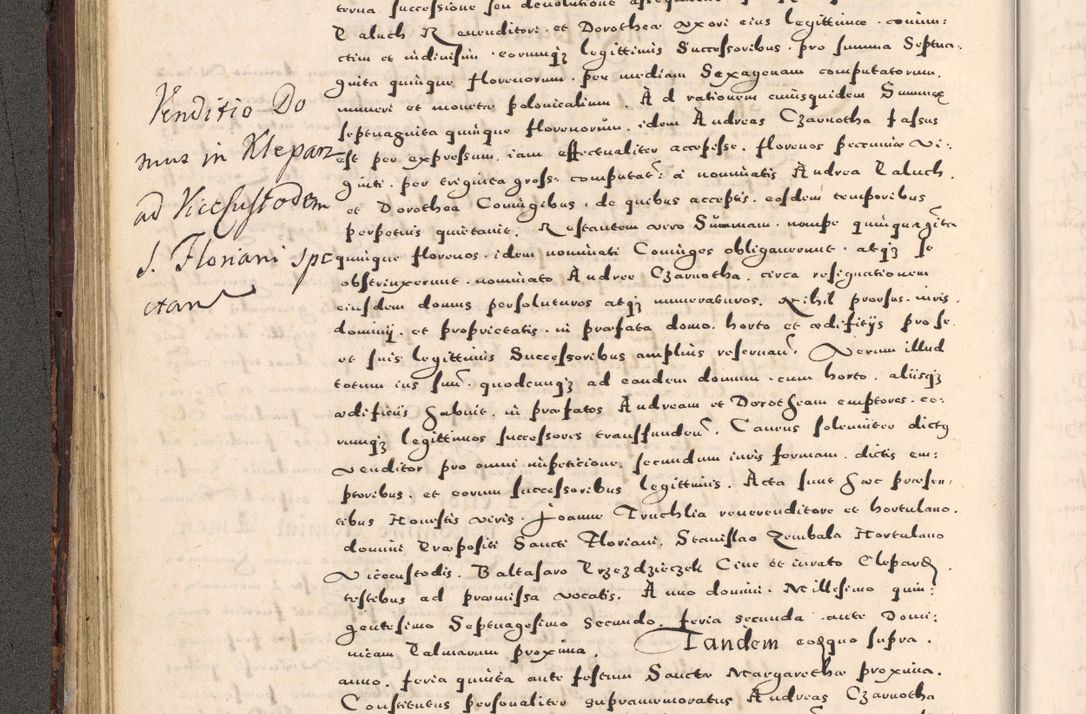 terna. successione seu devolutione
Paluch Revenditori et Dorotheæ uxori eius legittimæ coniun:
ctim et indivisim eorumqz legittimis Successoribus pro summa Septua:
ginta quinque florenorum. per mediam Sexagenam computatorum.
numeri et monetæ polonicalium. Ad rationem cuiusquidem Summæ
septuaginta quinque florenorum. idem Andreas Czarnotha fassus
est per expressum. iam effectualiter accepisse. florenos pecuniæ vi:
ginti. per triginta gross: computat: a nominatis Andrea Paluch.
et Dorothea Coniugibus. de quibus acceptis. eosdem temporibus
perpetuis quietavit. Restantem vero Summam. nempe quinquaginta
quinque florenos. idem nominati Coniuges obligaverunt. atqz se
obstrinxerunt. nominato Andreæ Czarnotha. circa resignationem
eiusdem domus persoluturos atqz numeraturos. Nihil prorsus iuris.
dominij. et proprietatis. in præfata domo. horto et ædifitijs pro se.
et suis legittimis Successoribus amplius reservan: Verum illud
totum ius suum. quodcunqz ad eandem domum. cum horto. aliisqz
ædificiis habuit. in præfatos Andream et Dorotheam emptores. eo:
rumqz legittimos successores transfunden: Cavens solenniter dictus
venditor pro omni impeticione. secundum iuris formam. dictis em:
ptoribus. et eorum successoribus legittimis. Acta sunt hæc præsen:
tibus Honestis viris. Joanne Truchlia revenditore et hortulano.
domini Præpositi Sancti Floriani. Stanislao Zembala Hortulano
Vicecustodis. Baltasaro Trzezdzieczek Cive et iurato Clepard:
testibus ad præmissa vocatis. Anno domini. Millesimo quin:
gentesimo Septuagesimo Secundo. feria secunda ante Domi:
nicam Palmarum proxima. Tandem eoque supra.
anno. feria quinta ante festum Sanctæ Margarethæ proxima.
Constitutus personaliter supramemoratus Andreas Czarnotha
Venditio Do
mus in Klepar
ad Vicecustodem
S. Floriani spe
ctans